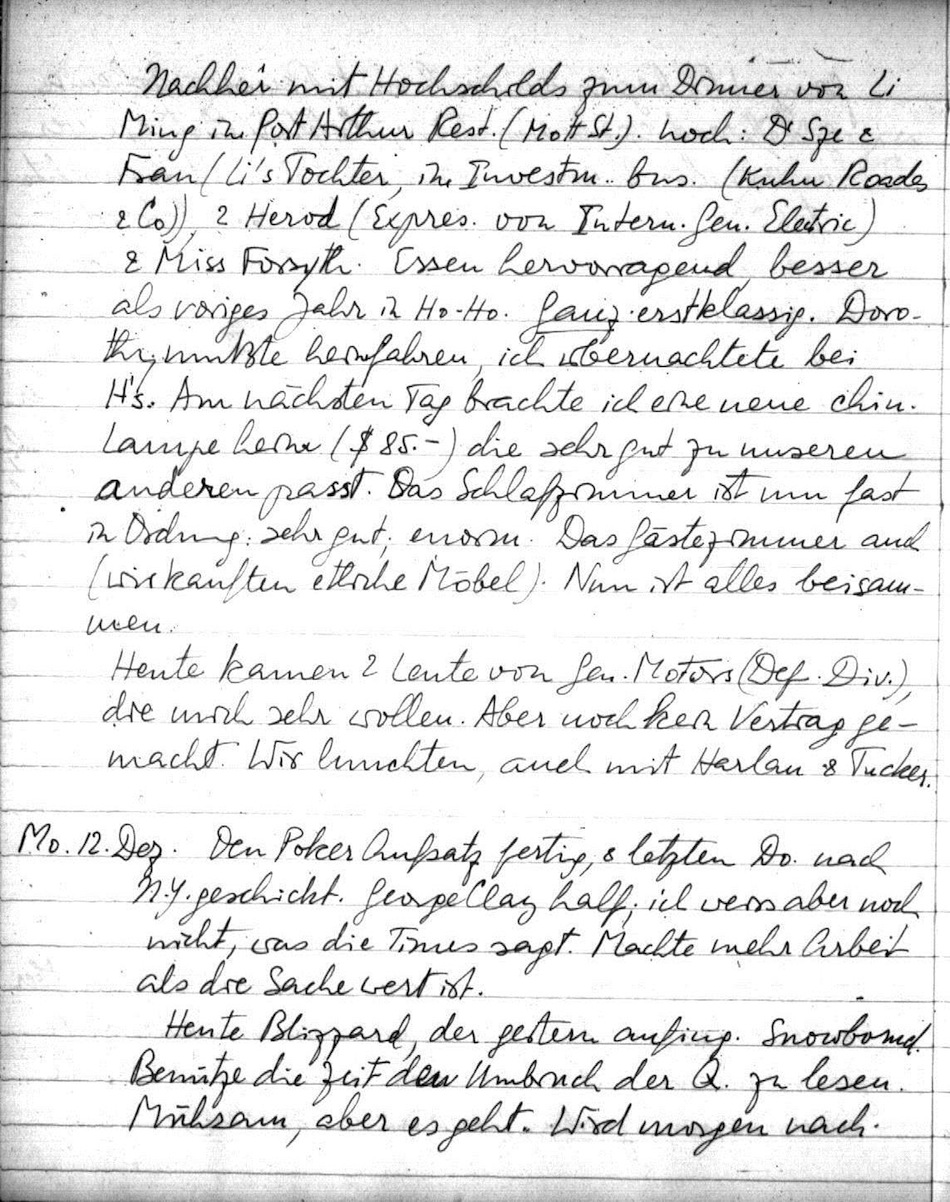 Nachher mit Hochschilds zum Dinner von Li
Ming im Port Arthur Rest. (Mott St.). noch: Dr Sze &
Frau (Li's Tochter, in Investm. bus. (Kuhn Roades
& Co)), 2 Herod (Expres. von Intern. Gen. Electric)
& Miss Forsyth. Essen hervorragend, besser
als voriges Jahr in Ho-Ho. Ganz erstklassig. Doro-
thy musste heimfahren, ich übernachtete bei
H's. Am nächsten Tag brachte ich eine neue chin.
Lampe heim ($ 85.-) die sehr gut zu unseren
anderen passt. Das Schlafzimmer ist nun fast
in Ordnung: sehr gut; enorm. Das Gästezimmer auch
(wir kauften etliche Möbel). Nun ist alles beisam-
men.
Heute kamen 2 Leute von Gen. Motors (Def. Div.),
die mich sehr wollen. Aber noch kein Vertrag ge-
macht. Wir lunchten, auch mit Harlan & Tucker.
Mo. 12. Dez. Den Poker Aufsatz fertig, & letzten Do. nach
N.Y. geschickt. George Clay half; ich weiss aber noch
nicht, was die Times sagt. Machte mehr Arbeit
als die Sache wert ist.
Heute Blizzard, der gestern anfing. Snowbound.
Benütze die Zeit den Umbruch der Q. zu lesen.
Mühsam, aber es geht. Wird morgen nach